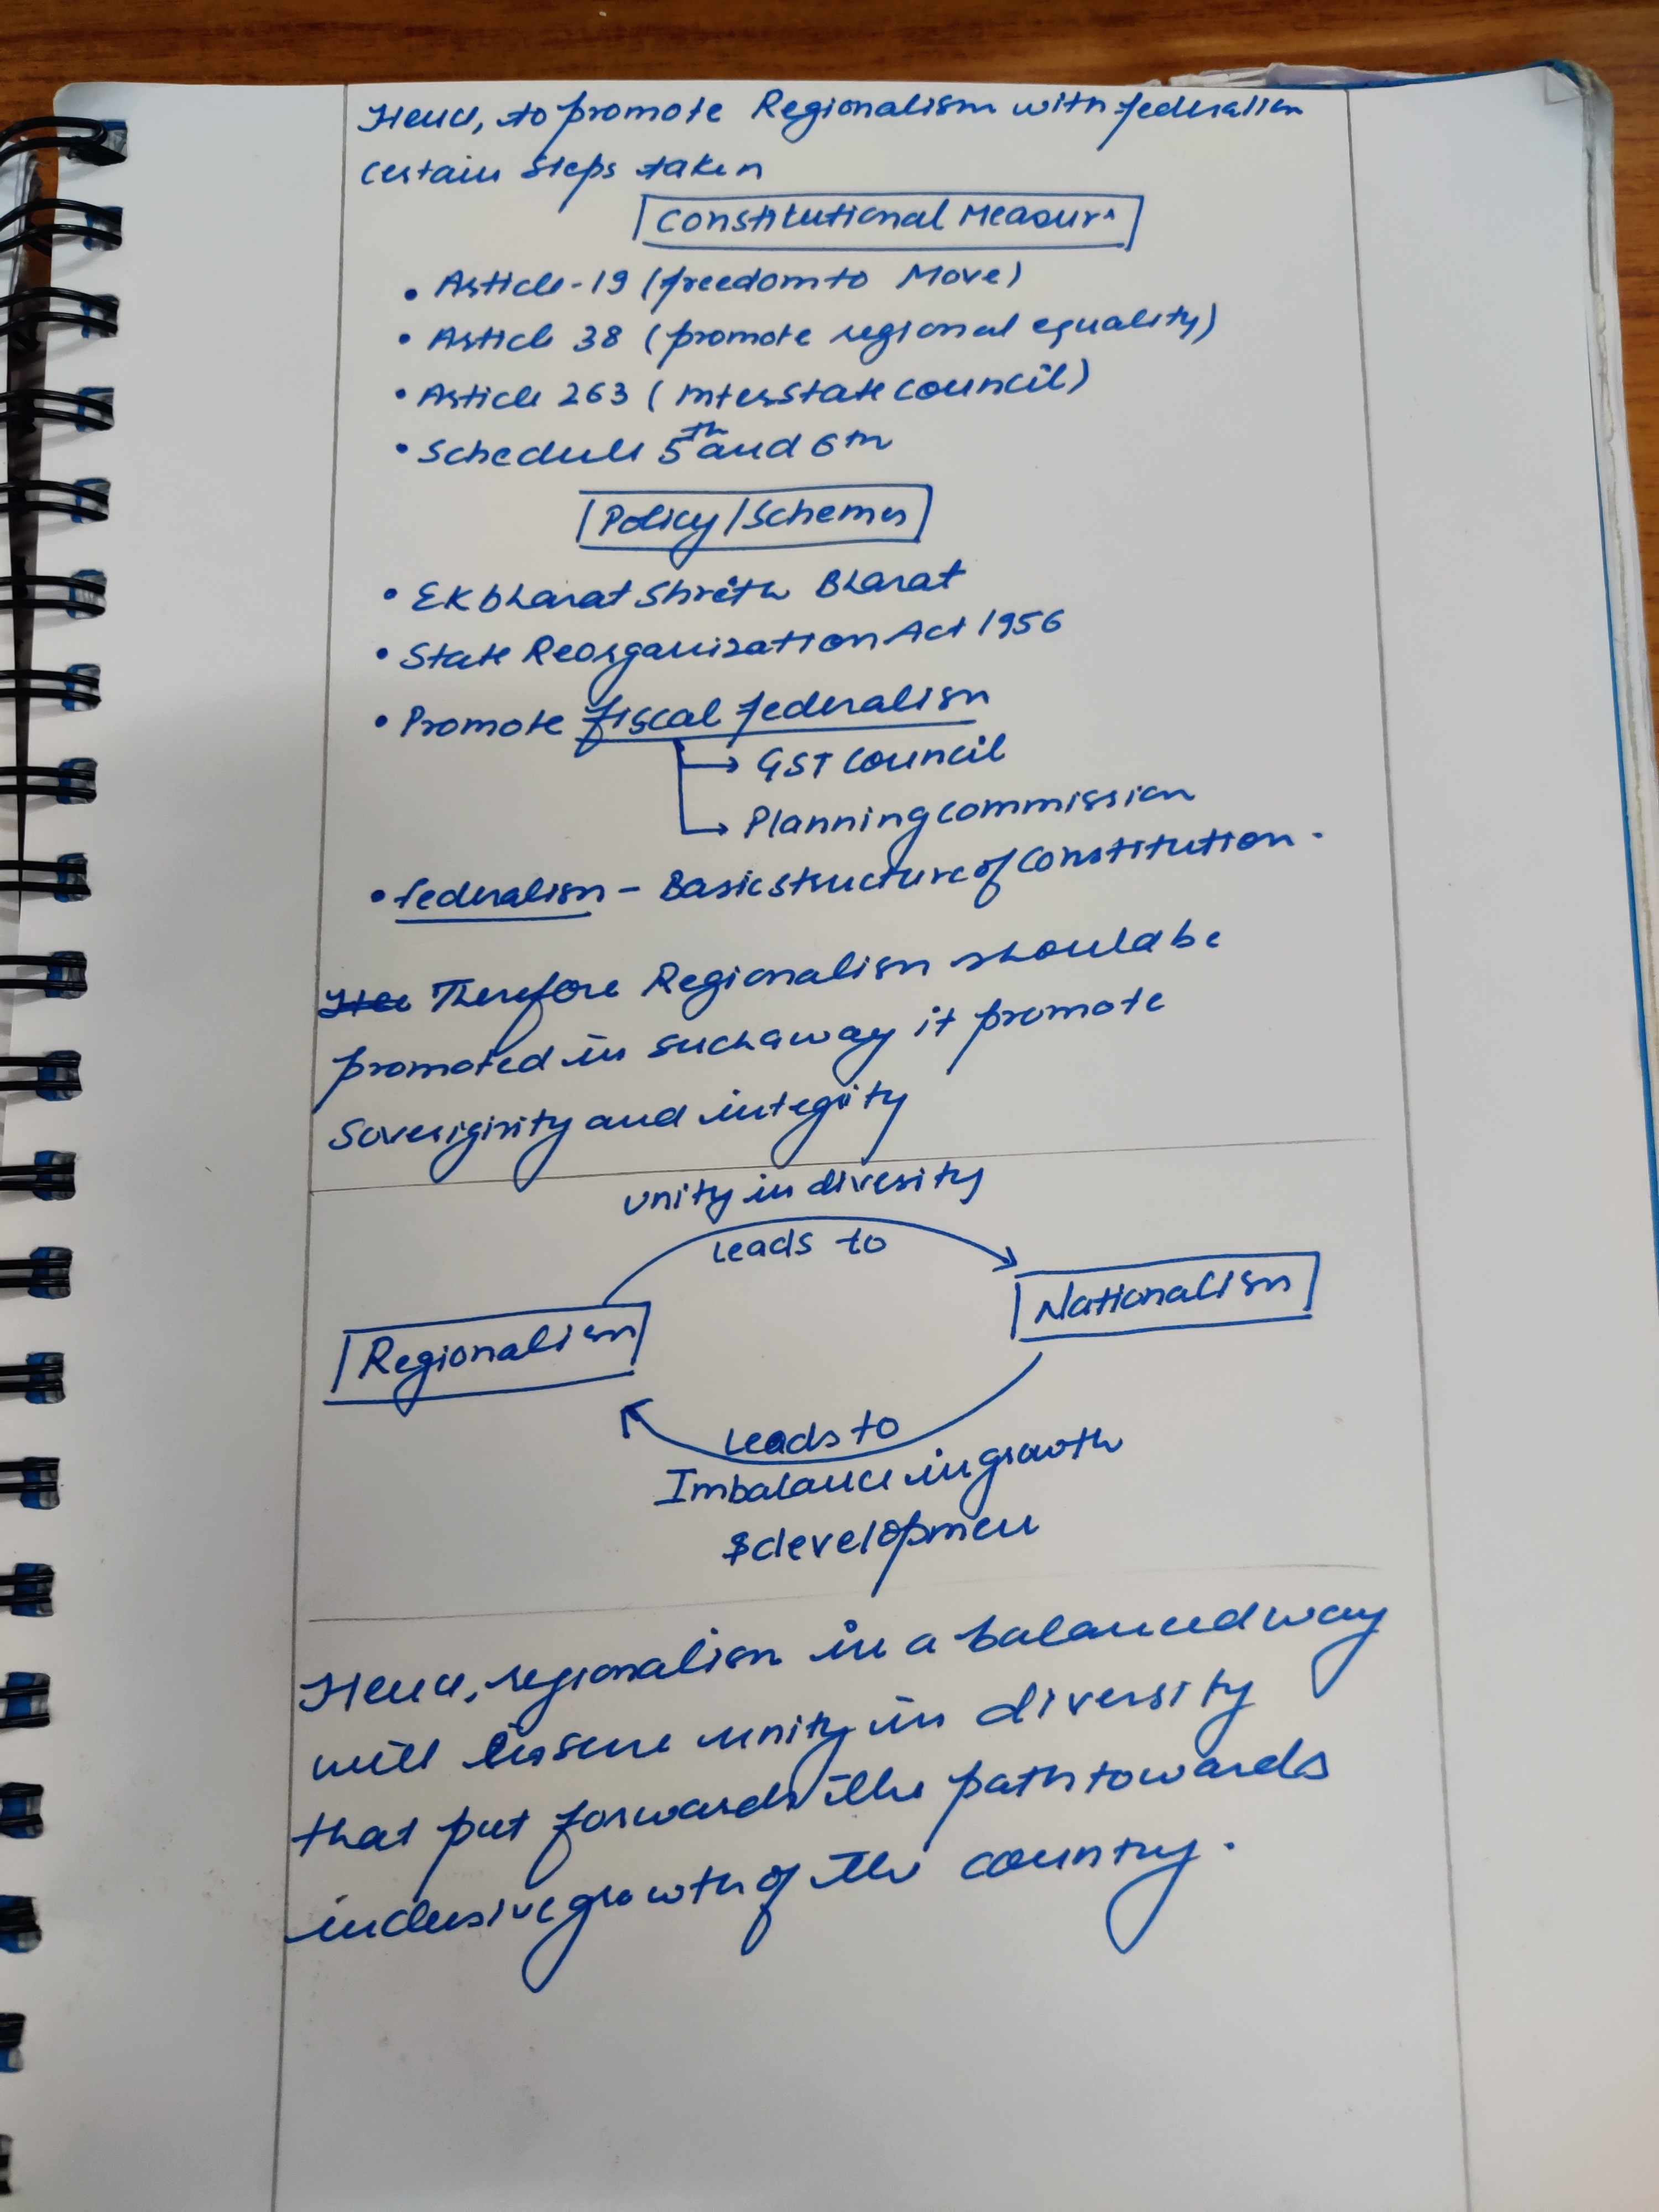 Hence, to promote Regionalism with federalism
certain steps taken
Constitutional Measure
• Article-19 (freedom to Move)
• Article 38 (promote regional equality)
• Article 263 (Interstate council)
• Schedule 5th and 6th
Policy/Schemes
• Ek bharat Shreth Bharat
• State Reorganization Act 1956
• Promote fiscal federalism
→ GST Council
→ Planning commission
• federalism - Basic structure of Constitution.
Therefore Regionalism should be
promoted in such a way it promote
Soverignity and integrity
unity in diversity
Leads to
Regionalism
Nationalism
Leads to
Imbalance in growth
& development
Hence, regionalism in a balanced way
will unity in diversity
that put forwards the path towards
inclusive growth of the country.